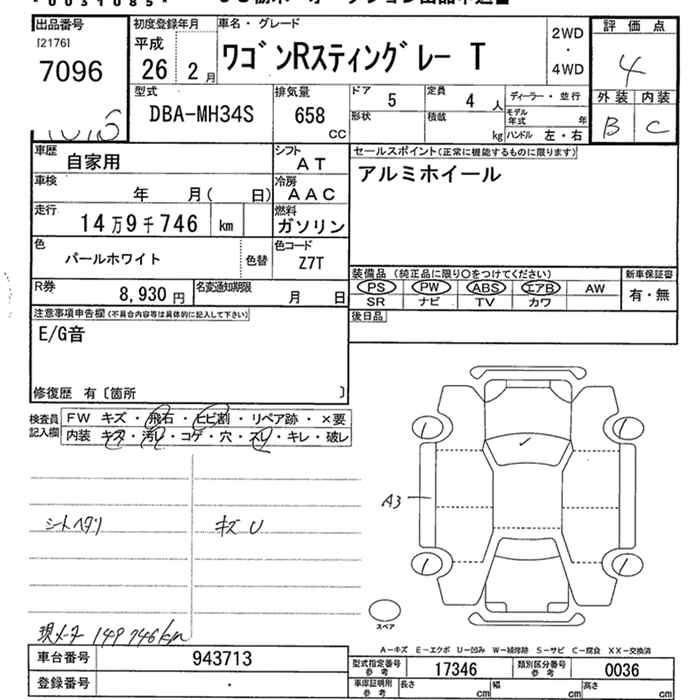 出品番号
[2176]
7096
初度登録年月
平成
26 2 月
車名・グレード
ワゴンRスティングレー T
2WD
・
4WD
評価点
4
外装 内装
B C
型式
DBA-MH34S
排気量
658
CC
ドア 5
形状
定員 4 人
積載 kg
ディーラー・並行
モデル年式 年
ハンドル 左・右
車歴 自家用
シフト AT
車検 年 月( 日)
冷房 AAC
走行 14万9千746 km
燃料 ガソリン
色 パールホワイト
色替
色コード Z7T
R券 8,930 円
名変通知期限 月 日
セールスポイント(正常に機能するものに限ります)
アルミホイール
装備品 (純正品に限り○をつけてください)
新車保証書
PS PW ABS エアB AW
有・無
SR ナビ TV カワ
後日品
注意事項申告欄(不具合内容等は具体的に記入して下さい)
E/G音
修復歴 有〔箇所 〕
検査員記入欄
FW キズ・飛石・ヒビ割・リペア跡・×要
内装 キズ・汚レ・コゲ・穴・スレ・キレ・破レ
シートヘタリ
キズ U
A3
スペア
現メーター 149746km
A-キズ E-エクボ U-凹み W-補修跡 S-サビ C-腐食 XX-交換済
車台番号 943713
登録番号 ・
型式指定番号 参考 17346
類別区分番号 参考 0036
車庫証明用 参考 長さ cm 幅 cm 高さ cm